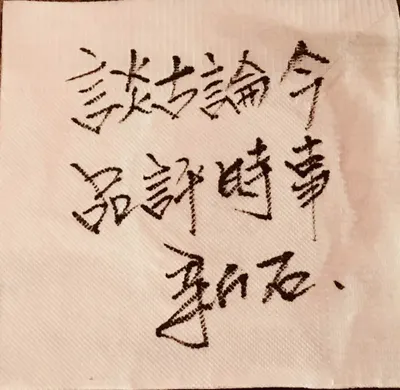 談古論今
品評時事
新石、